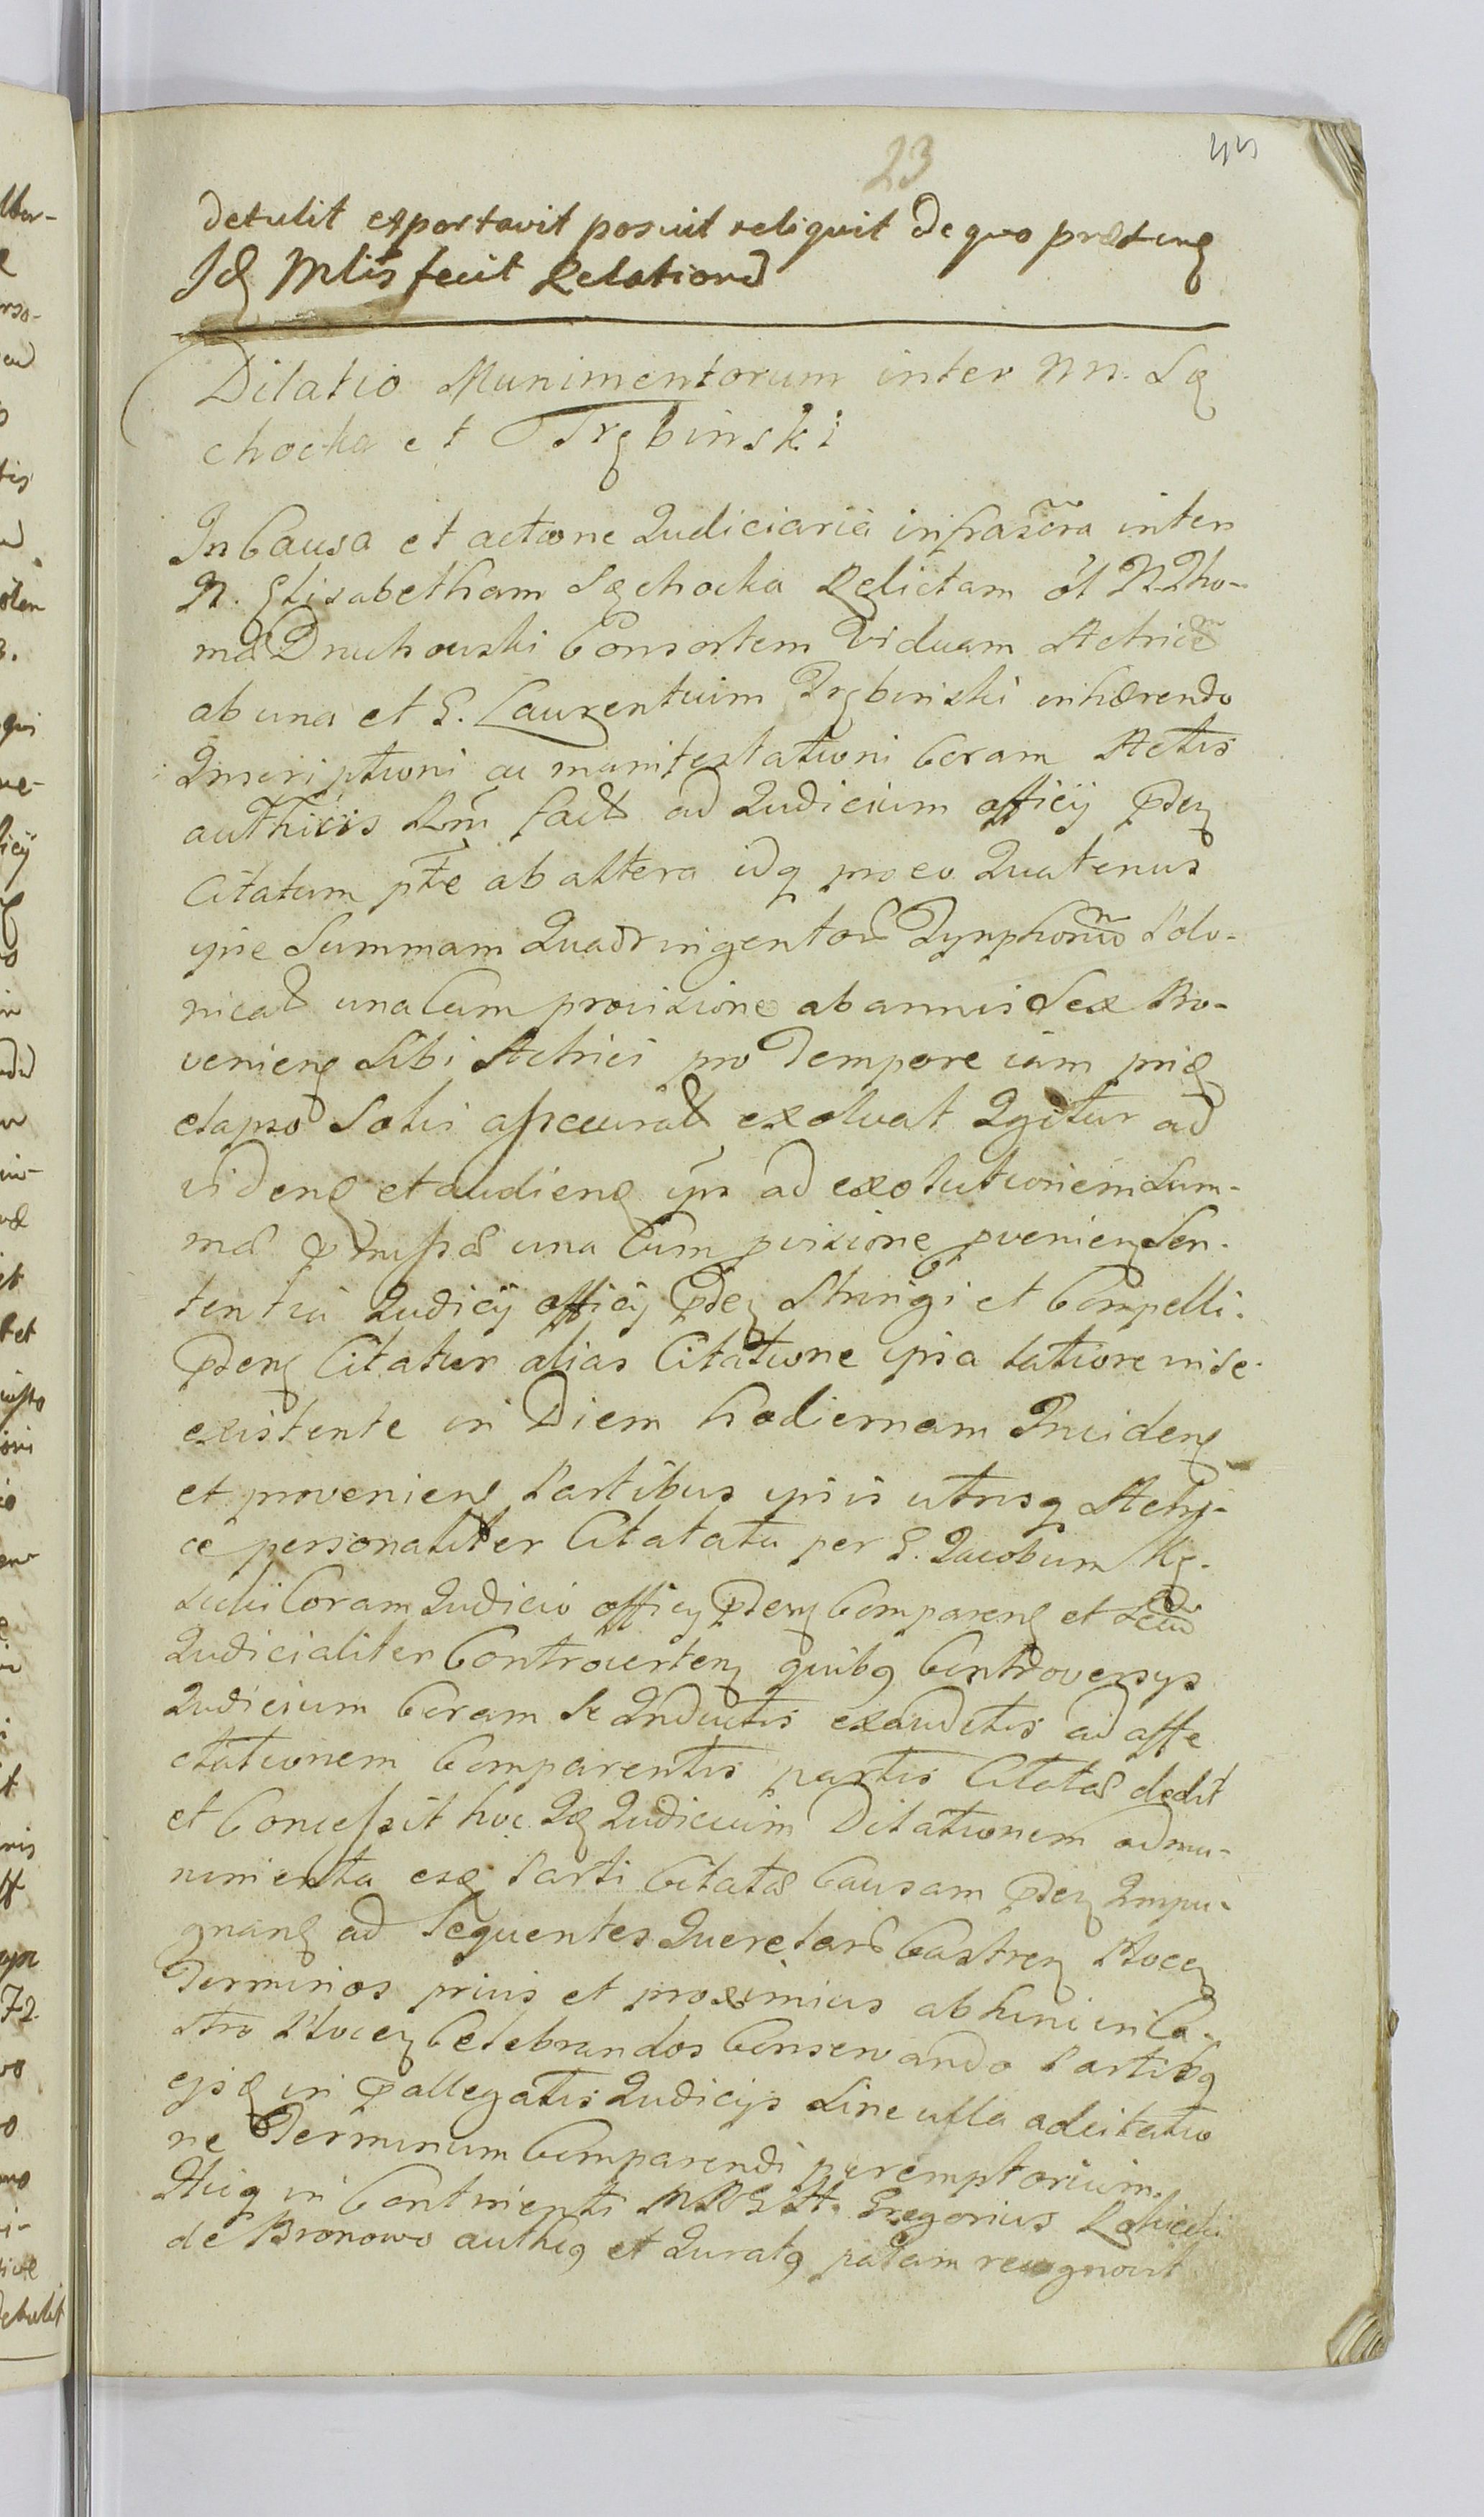 23
detulit exportavit posuit reliquit de quo præsens
Id Mlis fecit Relationē
Dilatio Munimentorum inter NN. Sę
chocka et Trębinski
In Causa et actione Judiciaria infrascra inter
N. Elisabetham Sęchocka Relictam ol N Tho-
mæ Druchowski Consortem Viduam Actricē
ab una et G. Laurentium Trębinski inhærendo
Inscriptioni ac manifestationi Coram Actis
authicis Rm factæ ad Judicium officij pden
Citatum pte ab altera idq pro eo Quatenus
ipse Summam Quadringentorū Tynphonū Polo-
nical una Cum provisione ab annis Sex Pro-
veniens Sibi Actrici pro Tempore iam prid
elapso Solis assecurat exolvat Igitur ad
videns et audiens ips ad exolutionem Sum-
mæ præmissæ una Cum pvisione pvenien Sen-
tentia Judicij officij pden Stringi et Compelli.
pdens Citatur alias Citatione ipsa latiore in se
existente in Diem hodiernam Inciden
et proveniens Partibus ipsis utrisq Actri-
ce personaliter Citatatu per G. Jacobum Kę-
sicki Coram Judicio officij pden Comparens et
Judicialiter Controverten quibq Controversys
Judicium Coram Se Inductis exauditis ad affe
ctationem Comparentis partis Citatæ dedit
et Concessit hoc Id Judicium Dilationem ad mu-
nimenta ex Parti Citatæ Causam pden Impu-
gnans ad Sequentes Querelarū Castren Plocen
Terminos prius et proximius ab hinc in Ca-
stro Plocen Celebrandos Conservando Partibq
ejsd in pallegatis Judicijs Sine ulla adcitatio
ne Terminum Comparendi peremptorium.
Hicq in Continenti Gregorius
de Bronowo authq et Juratq palam recognovit